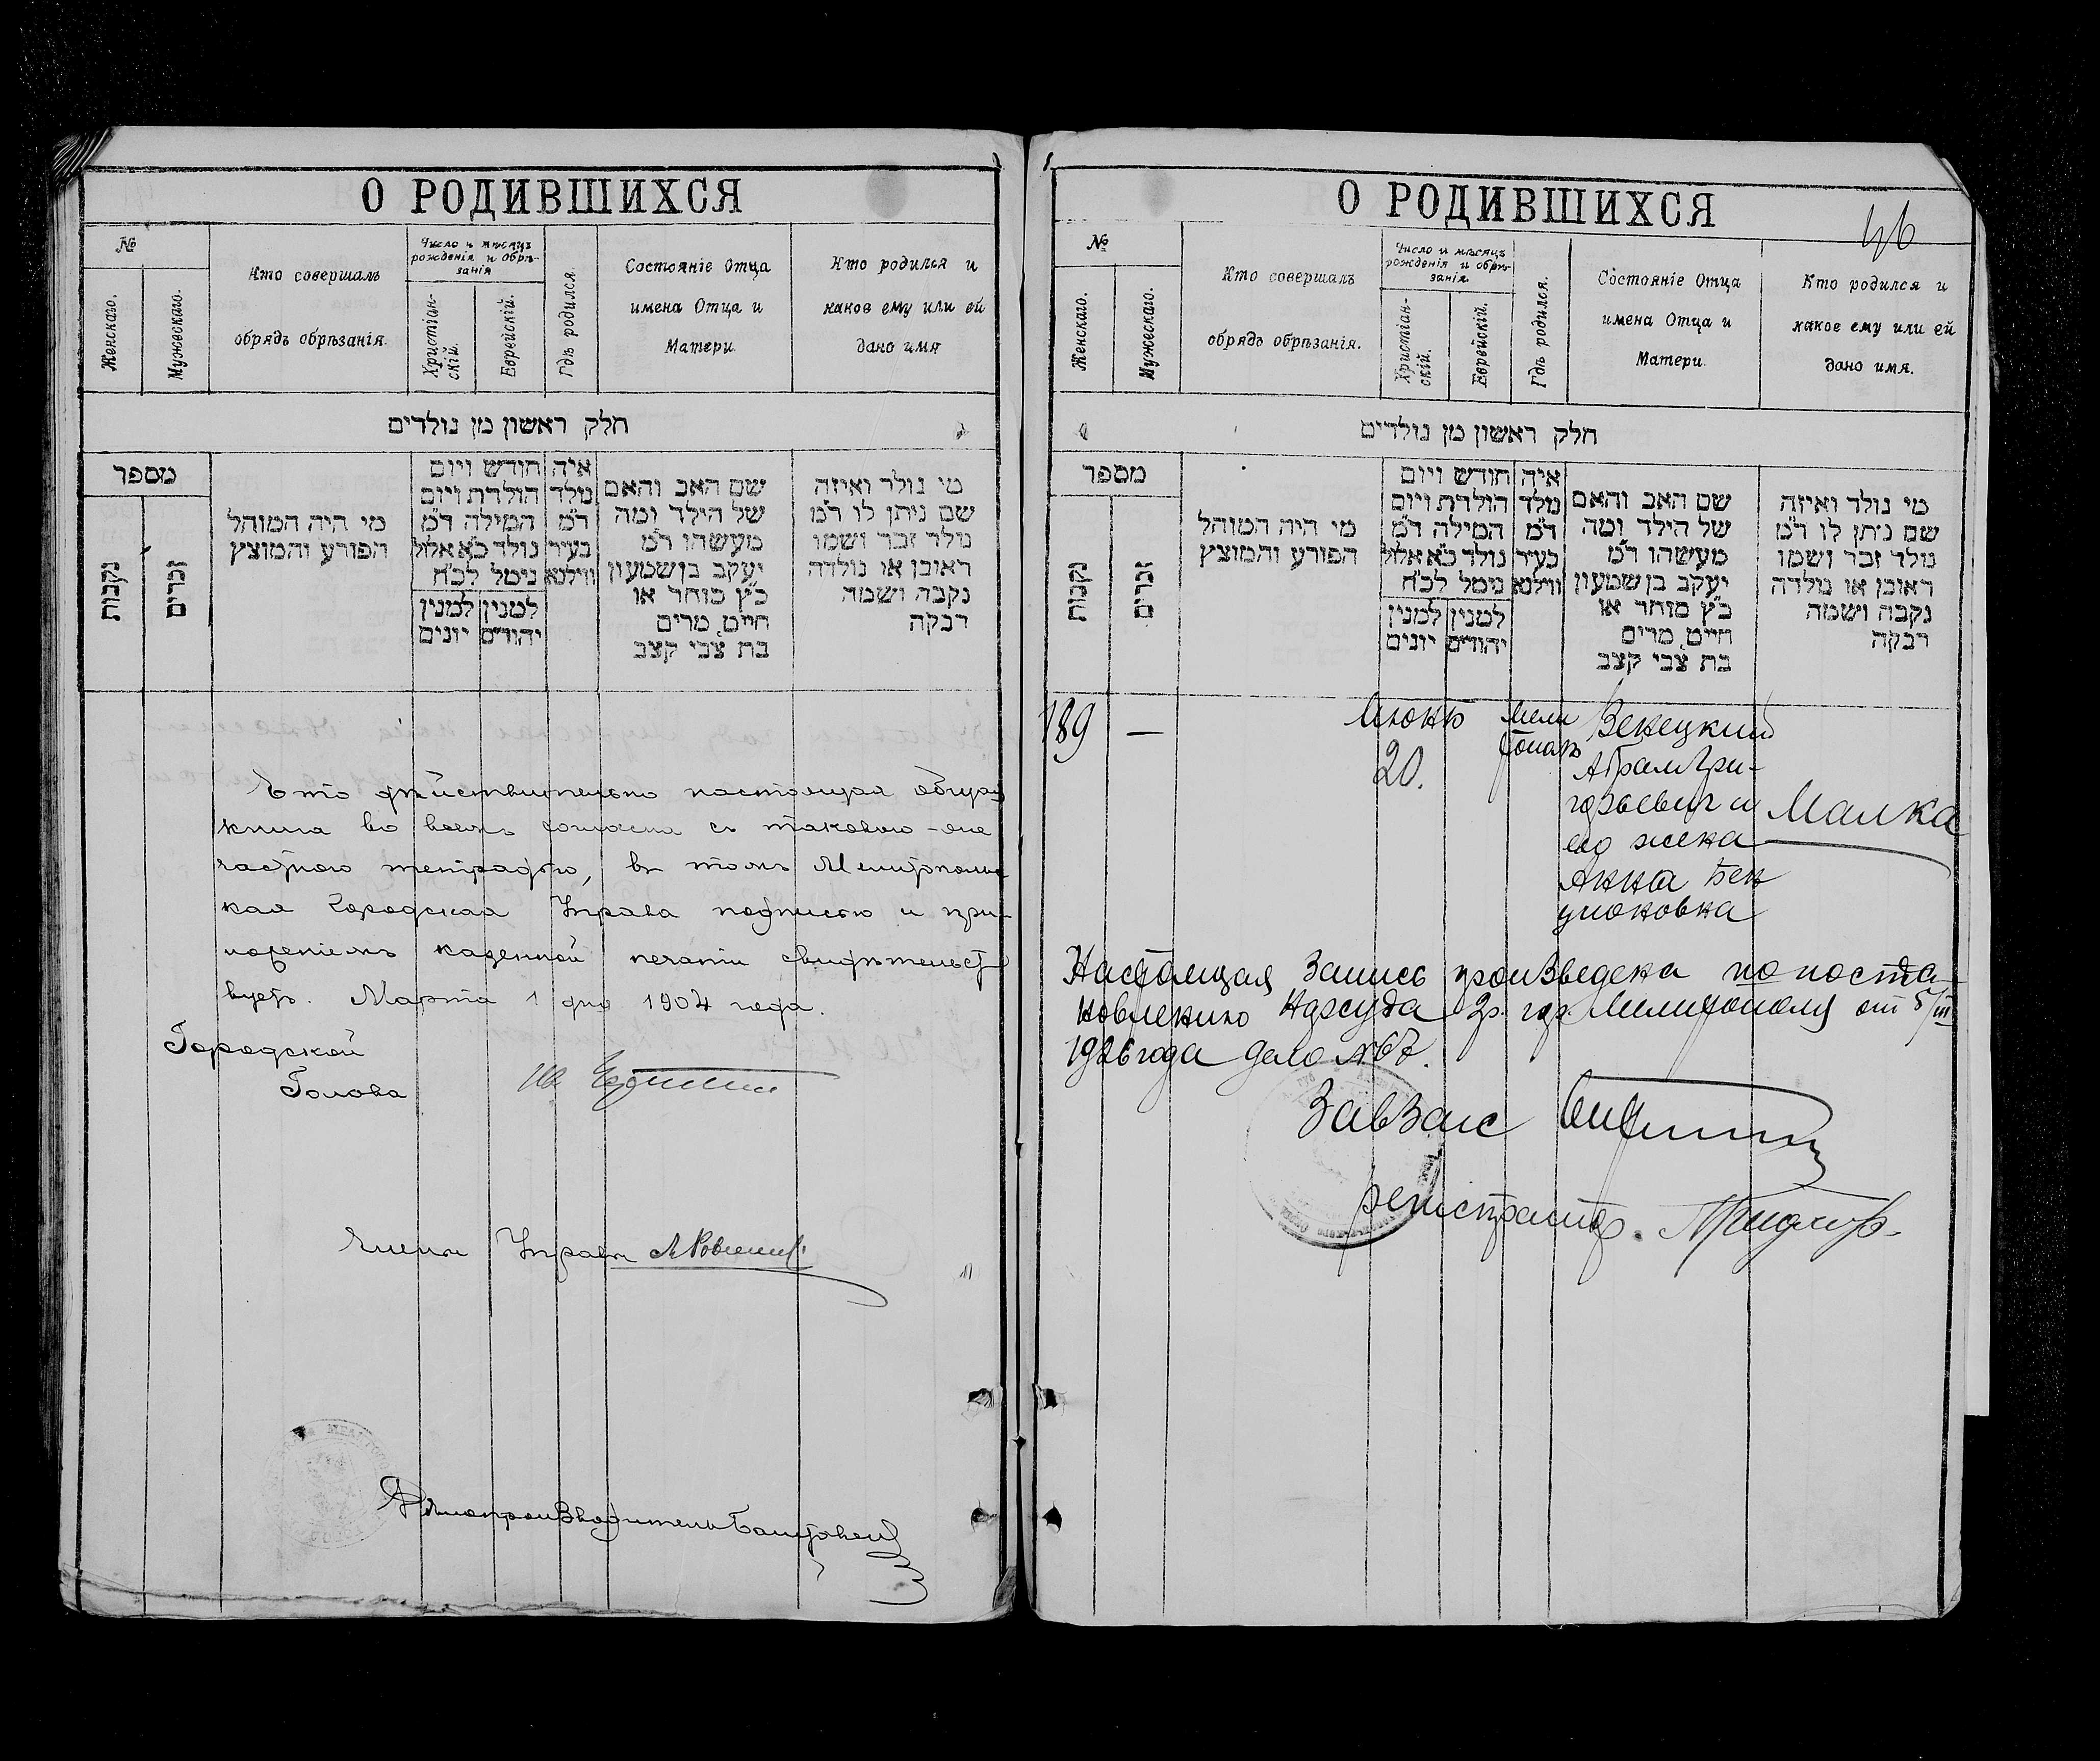 О РОДИВШИХСЯ
№
Женскаго.
Мужескаго.
Кто совершалъ
обрядъ обрѣзанія.
Число и мѣсяцъ
рожденія и обрѣ-
занія
Христіан-
скій.
Еврейскій.
Гдѣ родился.
Состояніе Отца
имена Отца и
Матери.
Кто родился и
какое ему или ей
дано имя
חלק ראשון מן נולדים
מספר
נקבות
זכרים
מי היה המוהל
הפורע והמוצץ
חודש ויום
הולדת ויום
המילה ד״מ
נולד כ״א אלול
נימל לכ״ח
למנין יהודים
למנין יונים
איה
נולד
ד״מ
בעיר
ווילנא
שם האב והאם
של הילד ומה
מעשהו ד״מ
יעקב בן שמעון
כ״ץ סוחר או
חייט מרים
בת צבי קצב
מי נולד ואיזה
שם ניתן לו ד״מ
נולד זכר ושמו
ראובן או נולדה
נקבה ושמה
רבקה
Что действительно настоящая
книга во всемъ согласна съ таковою
частною тетрадью, въ томъ Мелитополь-
ская Городская Управа подписью и при-
ложеніемъ казенной печати свидѣтельст-
вуетъ. Марта 1 дня 1904 года.
Городской
Голова
Членъ Управы
Дѣлопроизводитель
О РОДИВШИХСЯ
46
№
Женскаго.
Мужескаго.
Кто совершалъ
обрядъ обрѣзанія.
Число и мѣсяцъ
рожденія и обрѣ-
занія.
Христіан-
скій.
Еврейскій.
Гдѣ родился.
Состояніе Отца
имена Отца и
Матери.
Кто родился и
какое ему или ей
дано имя.
חלק ראשון מן נולדים
מספר
נקבות
זכרים
מי היה המוהל
הפורע והמוצץ
חודש ויום
הולדת ויום
המילה ד״מ
נולד כ״א אלול
נימל לכ״ח
למנין יהודים
למנין יונים
איה
נולד
ד״מ
בעיר
ווילנא
שם האב והאם
של הילד ומה
מעשהו ד״מ
יעקב בן שמעון
כ״ץ סוחר או
חייט מרים
בת צבי קצב
מי נולד ואיזה
שם ניתן לו ד״מ
נולד זכר ושמו
ראובן או נולדה
נקבה ושמה
רבקה
189 —
Июнь
20.
Мели
тополь
Венецкий
Абрам Гри-
горьевич и
его жена
Анна Бен
ционовна
Малка
Настоящая запись произведена по поста-
новлению Нарсуда 2р. гор. Мелитополя от 5/III
1926 года дело № 67.
ЗавЗагс
регистратор.